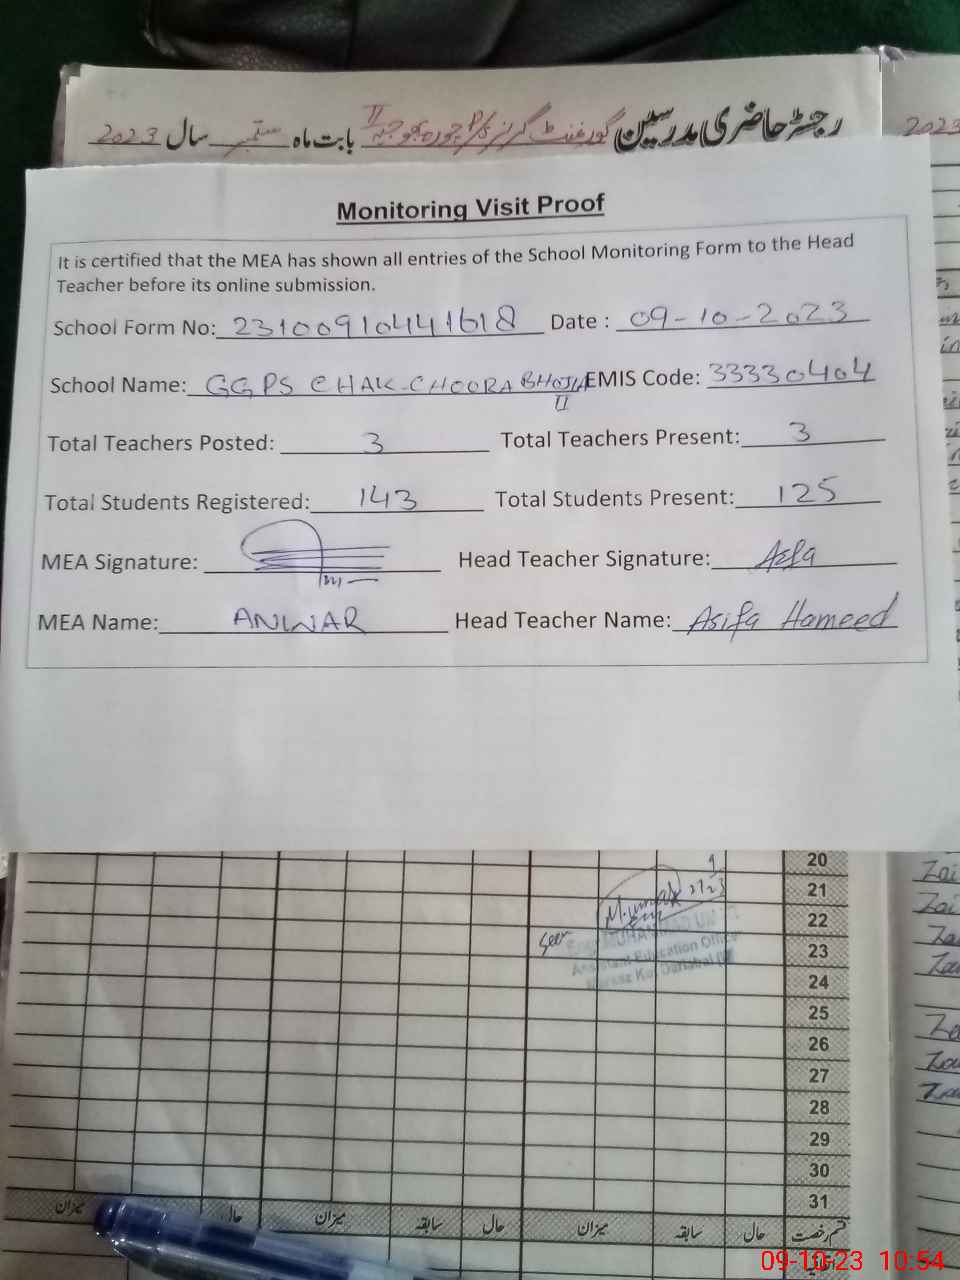 رجسٹر حاضری مدرسین گورنمنٹ گرلز P/S بابت ماہ ستمبر سال 2023
II
2023
Monitoring Visit Proof
It is certified that the MEA has shown all entries of the School Monitoring Form to the Head
Teacher before its online submission.
School Form No: 23100910441618 Date : 09-10-2023
School Name: GGPS CHAK-CHOORA BHOJIA EMIS Code: 33330404
II
Total Teachers Posted: 3 Total Teachers Present: 3
Total Students Registered: 143 Total Students Present: 125
MEA Signature: Head Teacher Signature: Asfa
MEA Name: ANWAR Head Teacher Name: Asifa Hameed
20
21
22
Seen
23
Assistant Education Officer
24
25
26
27
28
29
30
31
قسم رخصت حال سابقہ میزان حال سابقہ میزان حال میزان
اتفاقیہ
09-10-23 10:54